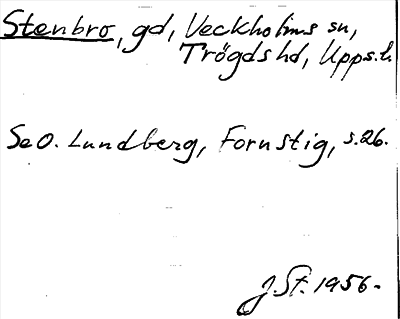 Stenbro, gd, Veckholms sn,
Trögds hd, Upps. l.
Se O. Lundberg, Fornstig, s. 26.
J. St. 1956.